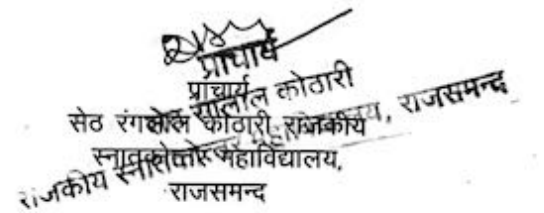 प्राचार्य
प्राचार्य
सेठ रंगलाल कोठारी राजकीय
स्नातकोत्तर महाविद्यालय,
राजसमन्द
लाल कोठारी
राजकीय स्नातकोत्तर महाविद्यालय, राजसमन्द